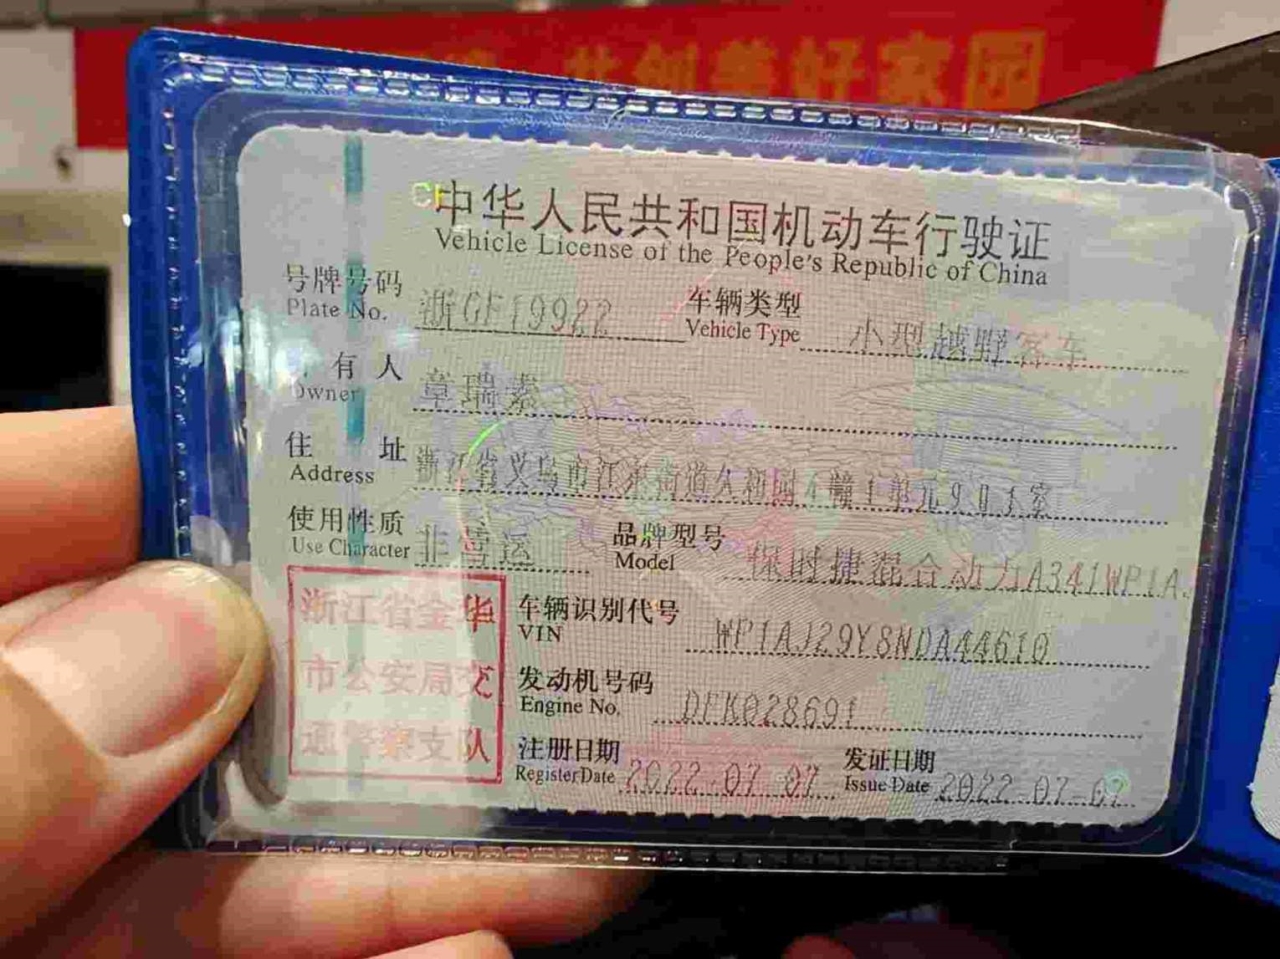 共创美好家园
中华人民共和国机动车行驶证
Vehicle License of the People's Republic of China
号牌号码 浙GF19922 车辆类型 小型越野客车
Plate No. Vehicle Type
有人 章瑞素
Owner
住址 浙江省义乌市江东街道人和园 1单元901室
Address
使用性质 非营运 品牌型号 保时捷混合动力A341WP1A
Use Character Model
浙江省金华
市公安局交
通警察支队
车辆识别代号 WP1AJ29Y8NDA44610
VIN
发动机号码 DFK028691
Engine No.
注册日期 2022-07-07 发证日期 2022-07-07
Register Date Issue Date